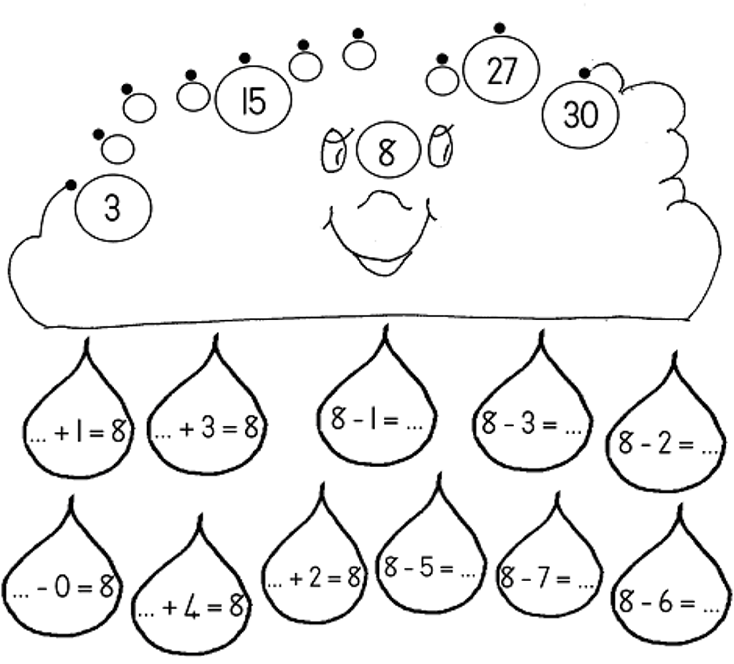 27
15
30
8
3
... + 1 = 8
... + 3 = 8
8 - 1 = ...
8 - 3 = ...
8 - 2 = ...
... - 0 = 8
... + 4 = 8
... + 2 = 8
8 - 5 = ...
8 - 7 = ...
8 - 6 = ...